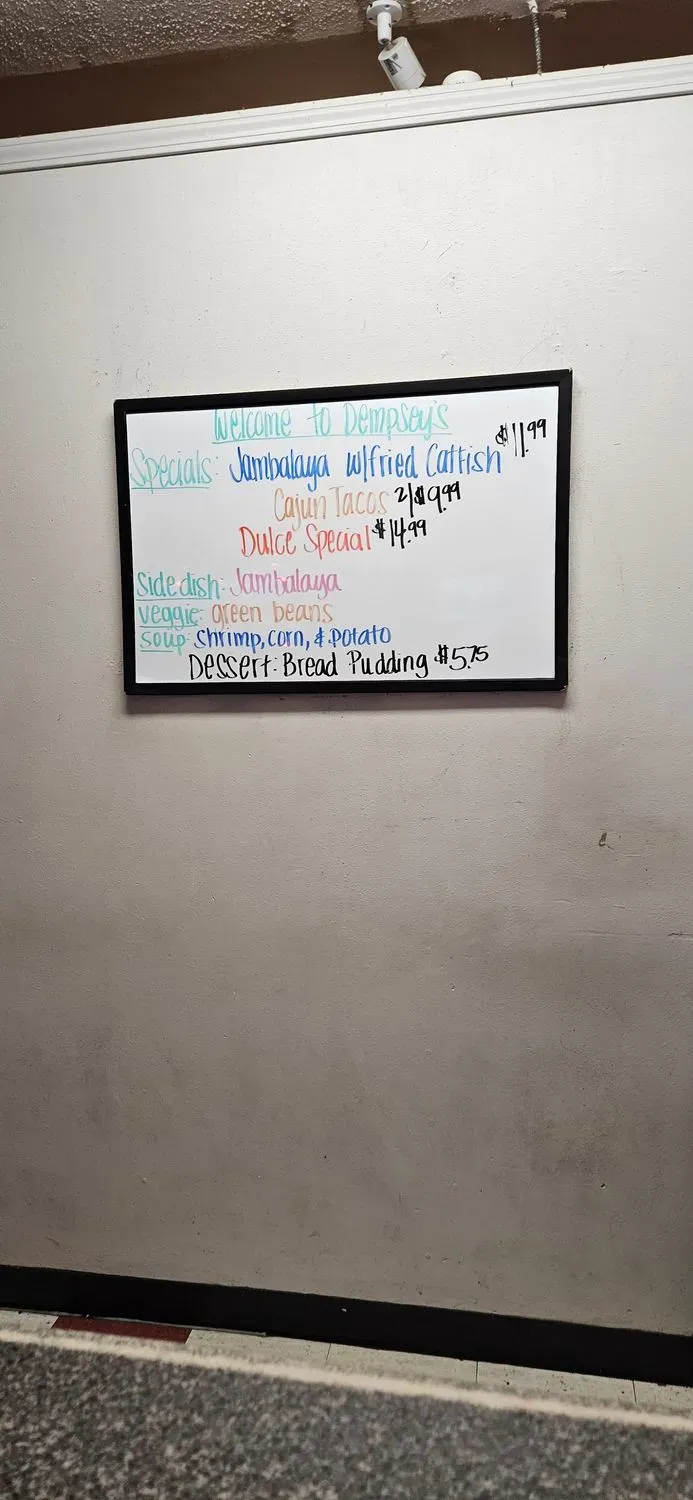 Welcome to Dempsey's
Specials: Jambalaya w/fried Catfish $11.99
Cajun Tacos 2/$9.99
Dulce Special $14.99
Side dish: Jambalaya
veggie: green beans
soup: shrimp, corn, & potato
Dessert: Bread Pudding $5.75